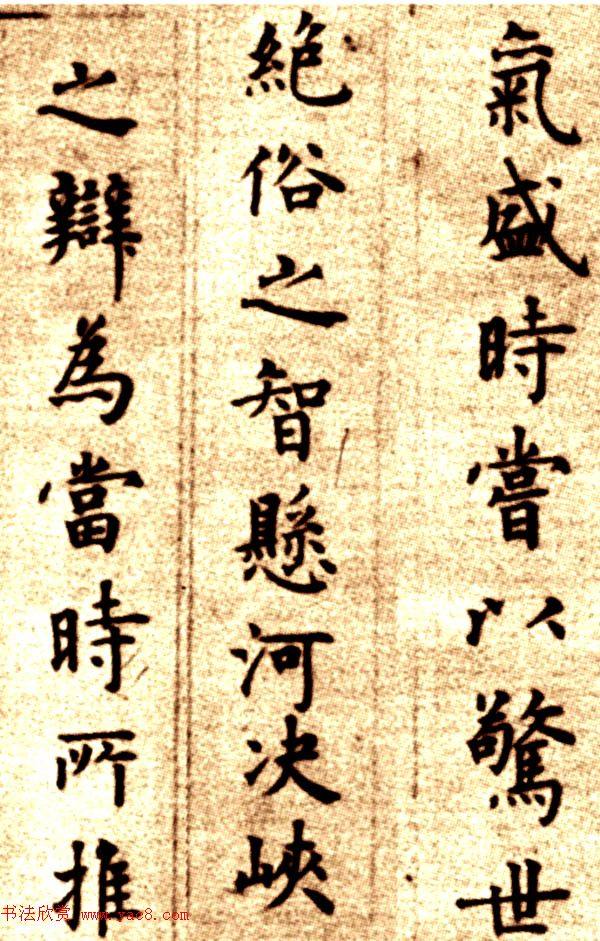 氣盛時嘗以驚世
絶俗之智懸河决峽
之辯為當時所推
书法欣赏 www.yac8.com